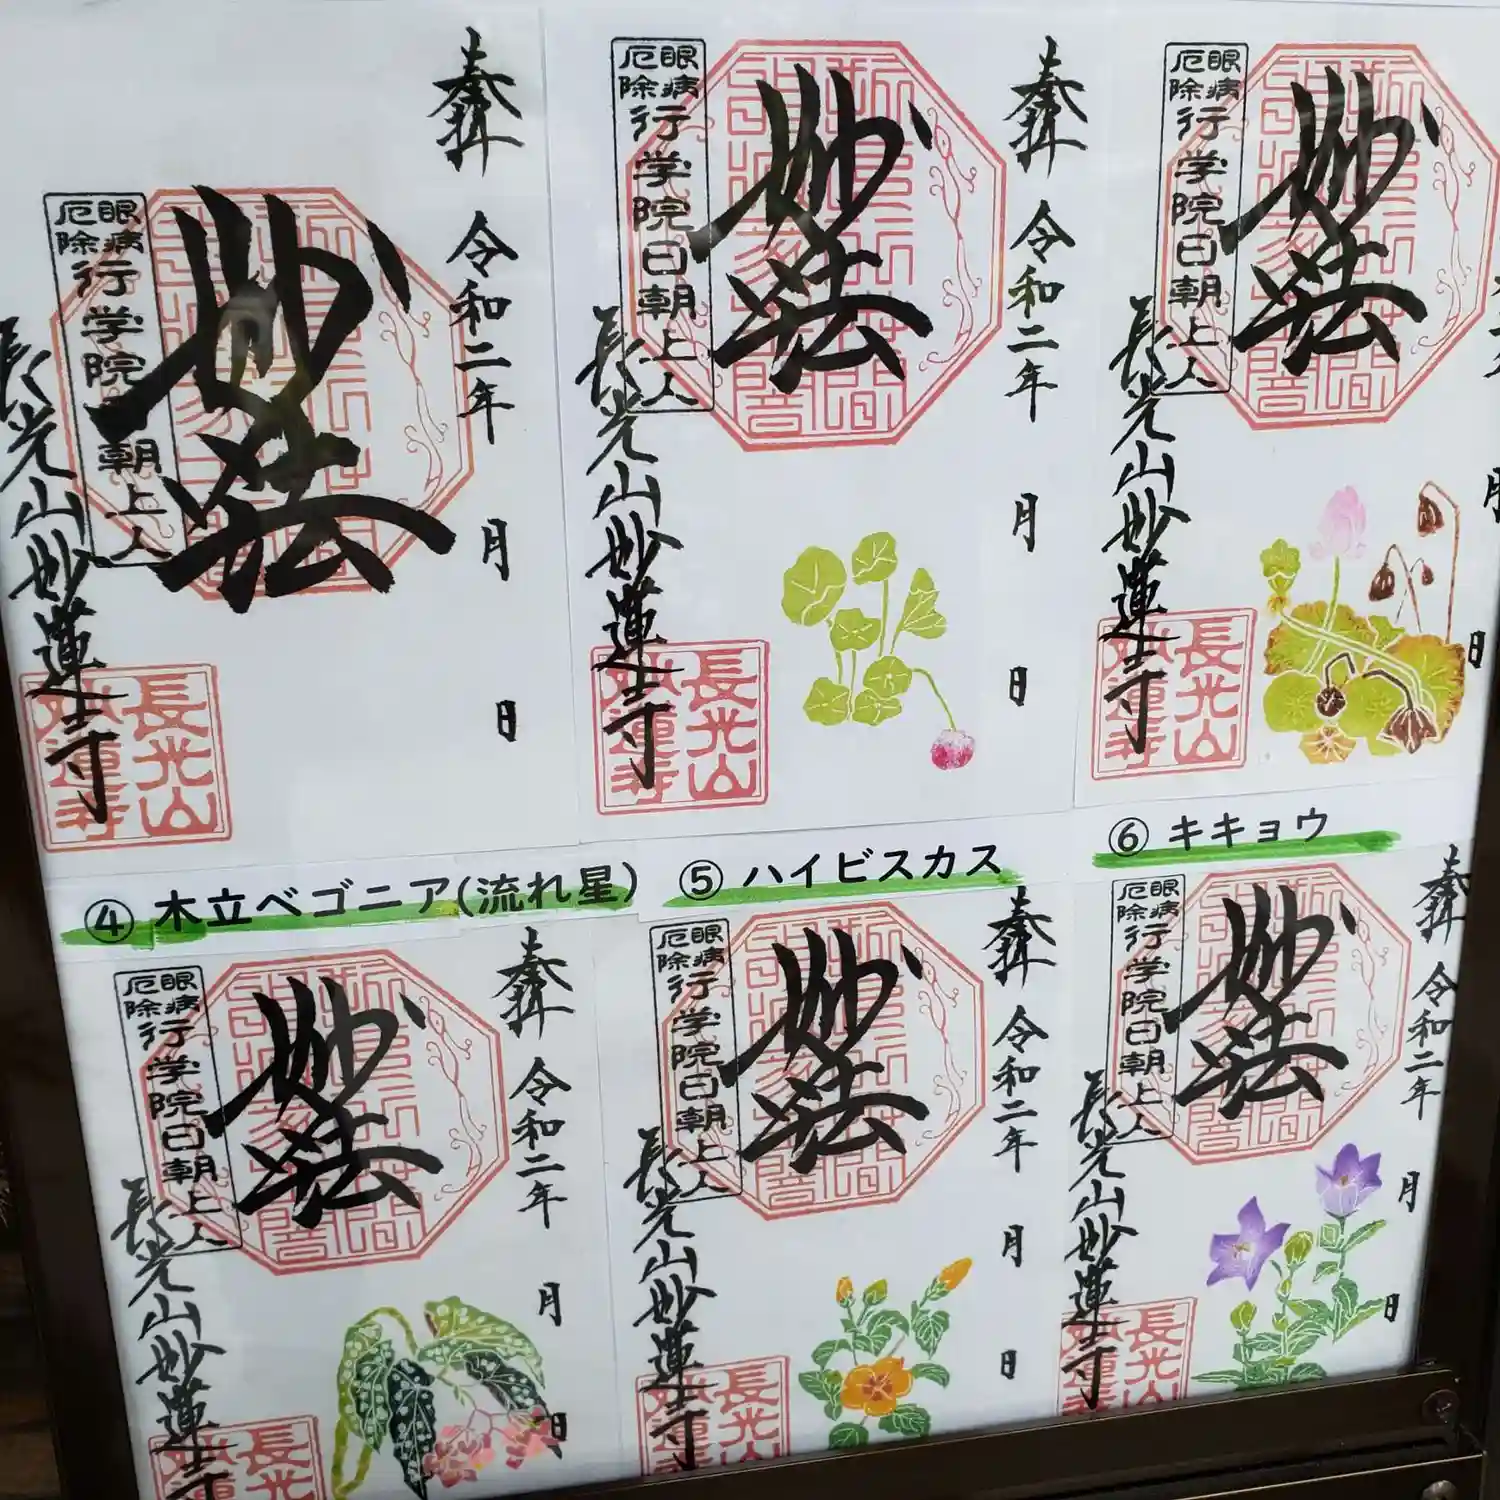 奉拝
令和二年
月
日
眼病
厄除
行学院日朝上人
妙法
長光山妙蓮寺
長光山
妙蓮寺
奉拝
令和二年
月
日
眼病
厄除
行学院日朝上人
妙法
長光山妙蓮寺
長光山
妙蓮寺
月
日
眼病
厄除
行学院日朝上人
妙法
長光山妙蓮寺
長光山
妙蓮寺
④ 木立ベゴニア(流れ星)
⑤ ハイビスカス
⑥ キキョウ
奉拝
令和二年
月
日
眼病
厄除
行学院日朝上人
妙法
長光山妙蓮寺
長光
奉拝
令和二年
月
日
眼病
厄除
行学院日朝上人
妙法
長光山妙蓮寺
長光山
妙蓮寺
奉拝
令和二年
月
日
眼病
厄除
行学院日朝上人
妙法
長光山妙蓮寺
長光山
妙蓮寺